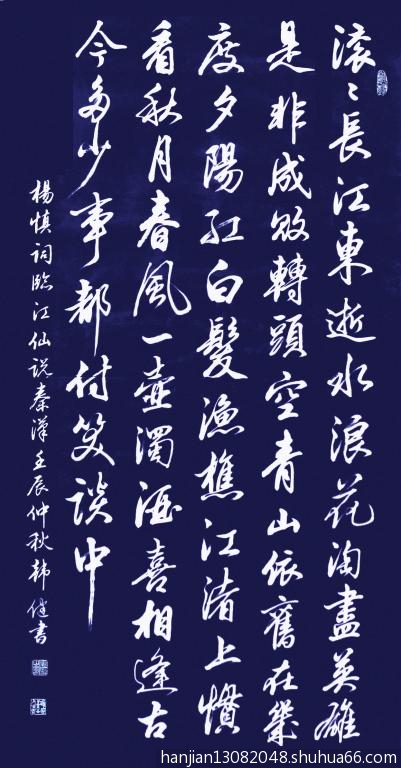 滚〻長江東逝水浪花淘盡英雄
是非成敗轉頭空青山依舊在幾
度夕陽紅白髮漁樵江渚上慣
看秋月春風一壺濁酒喜相逢古
今多少事都付笑談中
楊慎词臨江仙说秦漢壬辰仲秋韩健書
hanjian13082048.shuhua66.com